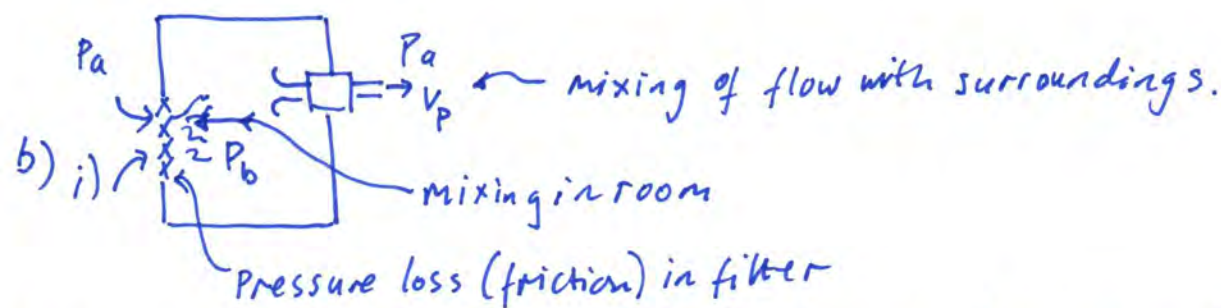 Pa
Pa
Vp
mixing of flow with surroundings.
b) i)
Pb
mixing in room
Pressure loss (friction) in filter